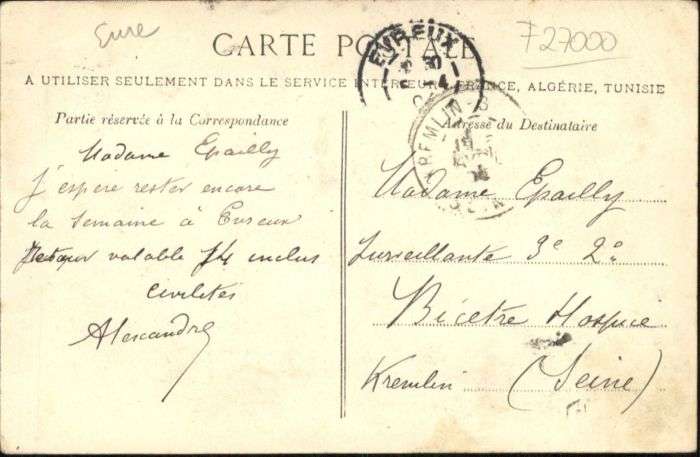 Eure
F27000
CARTE POSTALE
A UTILISER SEULEMENT DANS LE SERVICE INTÉRIEUR FRANCE, ALGÉRIE, TUNISIE
EVREUX
KREMLIN-B
Partie réservée à la Correspondance
Madame Epailly
J'espère rester encore
la semaine à Evreux
Retour valable 14 inclus
Civilités
Alexandre
Adresse du Destinataire
Madame Epailly
Surveillante 3e 2o
Bicetre Hospice
Kremlin (Seine)